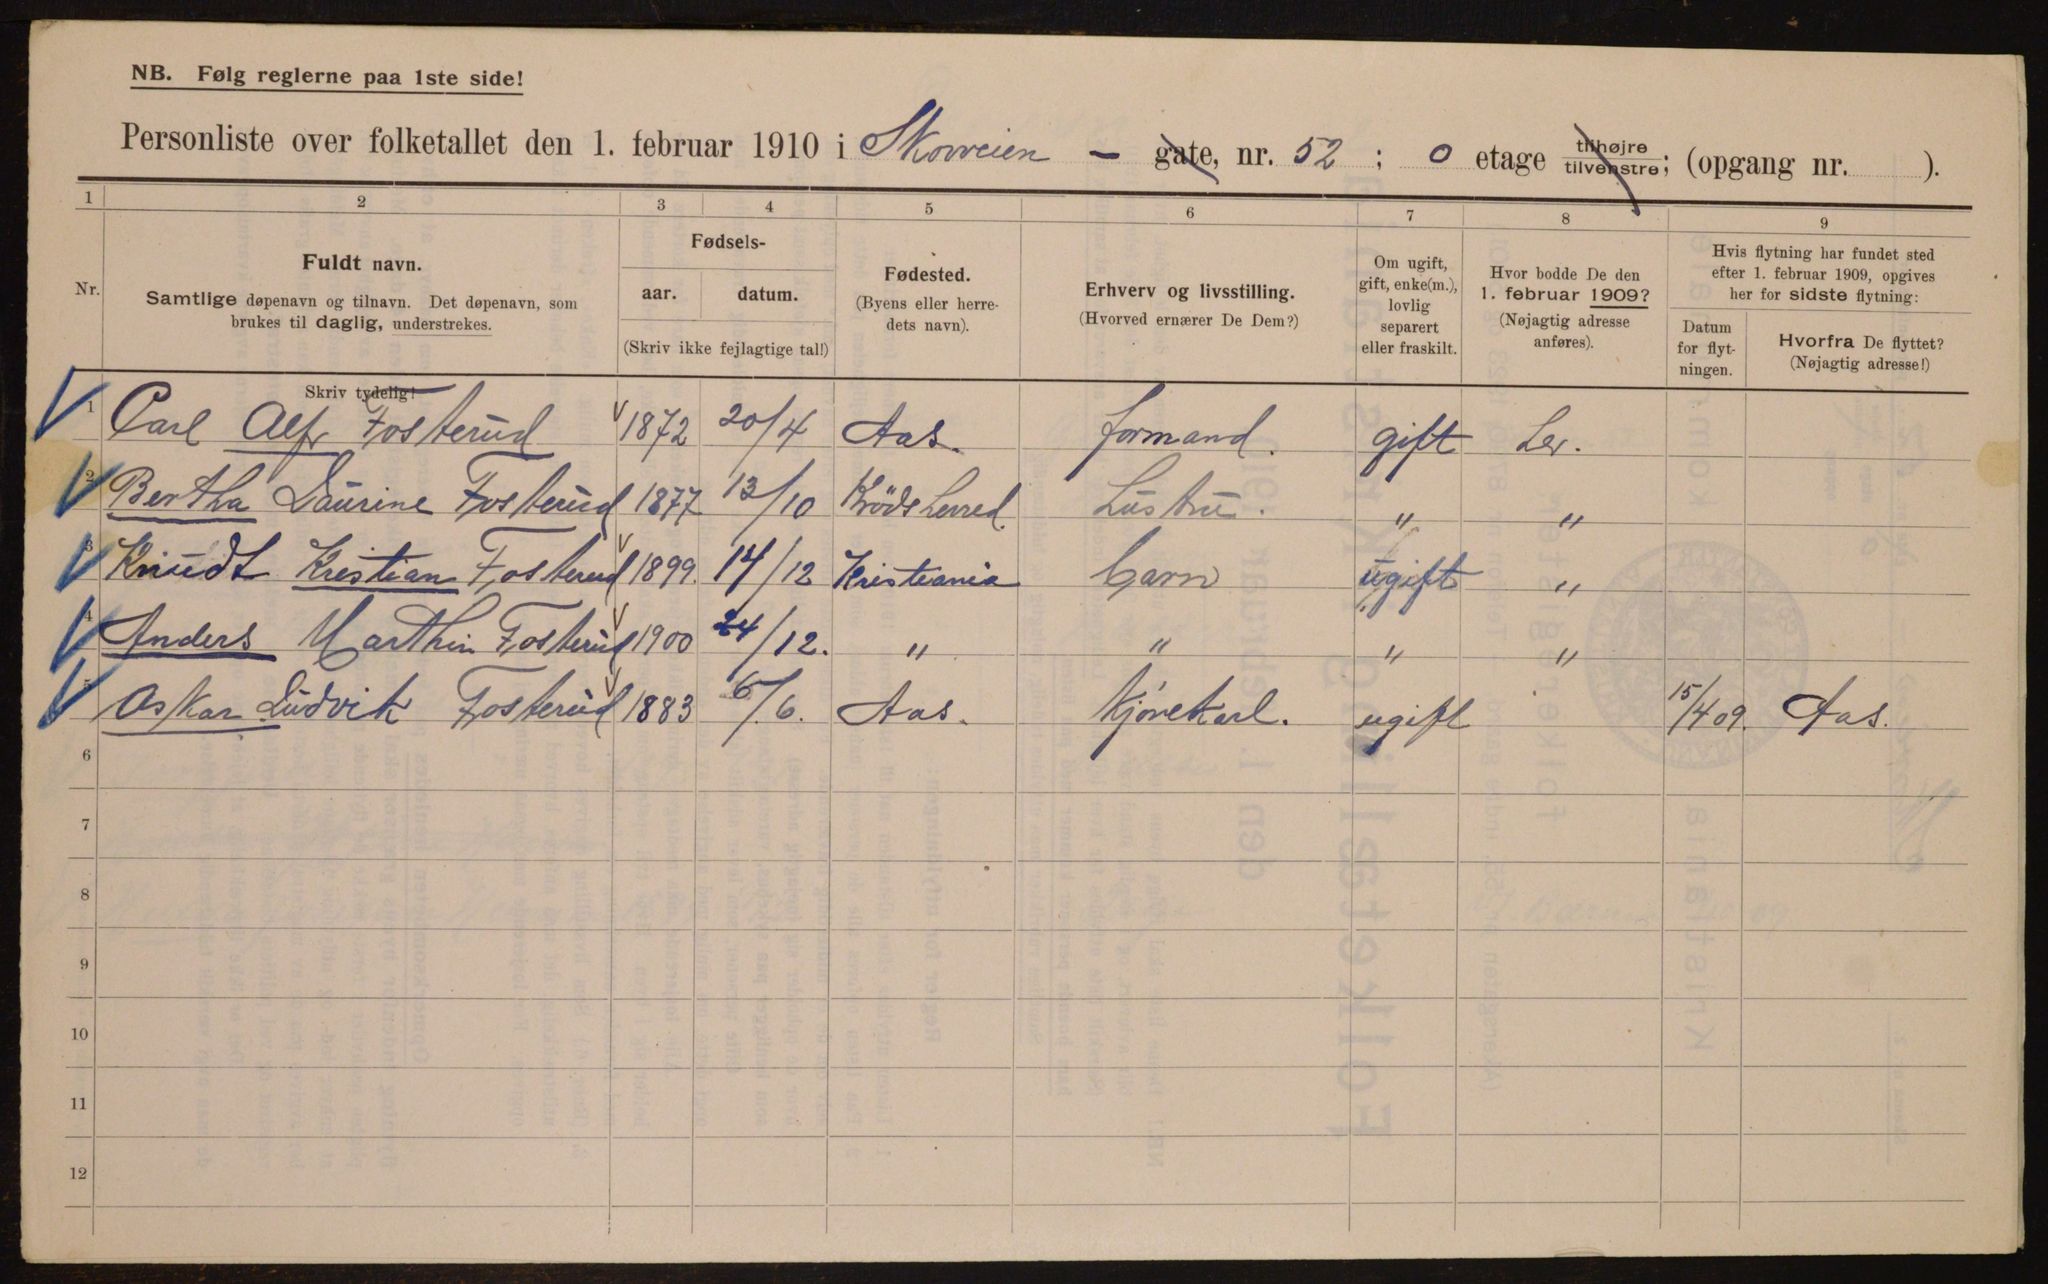 NB. Følg reglerne paa 1ste side!
Personliste over folketallet den 1. februar 1910 i Skovveien - gate, nr. 52 ; 0 etage tilhøjre tilvenstre; (opgang nr. ).
1 2 3 4 5 6 7 8 9
Nr.
Fuldt navn.
Samtlige døpenavn og tilnavn. Det døpenavn, som
brukes til daglig, understrekes.
Skriv tydelig!
Fødsels-
aar. datum.
(Skriv ikke fejlagtige tal!)
Fødested.
(Byens eller herre-
dets navn).
Erhverv og livsstilling.
(Hvorved ernærer De Dem?)
Om ugift,
gift, enke(m.),
lovlig
separert
eller fraskilt.
Hvor bodde De den
1. februar 1909?
(Nøjagtig adresse
anføres).
Hvis flytning har fundet sted
efter 1. februar 1909, opgives
her for sidste flytning:
Datum
for flyt-
ningen.
Hvorfra De flyttet?
(Nøjagtig adresse!)
1 Carl Alfr Fosterud 1872 20/4 Aas. formand. gift Her.
2 Bertha Laurine Fosterud 1877 13/10 Krödsherred. Hustru. " "
3 Knudt Kristian Fosterud 1899. 14/12 Kristiania Barn ugift "
4 Anders Marthin Fosterud 1900 24/12. " " " "
5 Oskar Ludvik Fosterud 1883 6/6. Aas. Kjörekarl. ugift 15/4 09. Aas.
6
7
8
9
10
11
12